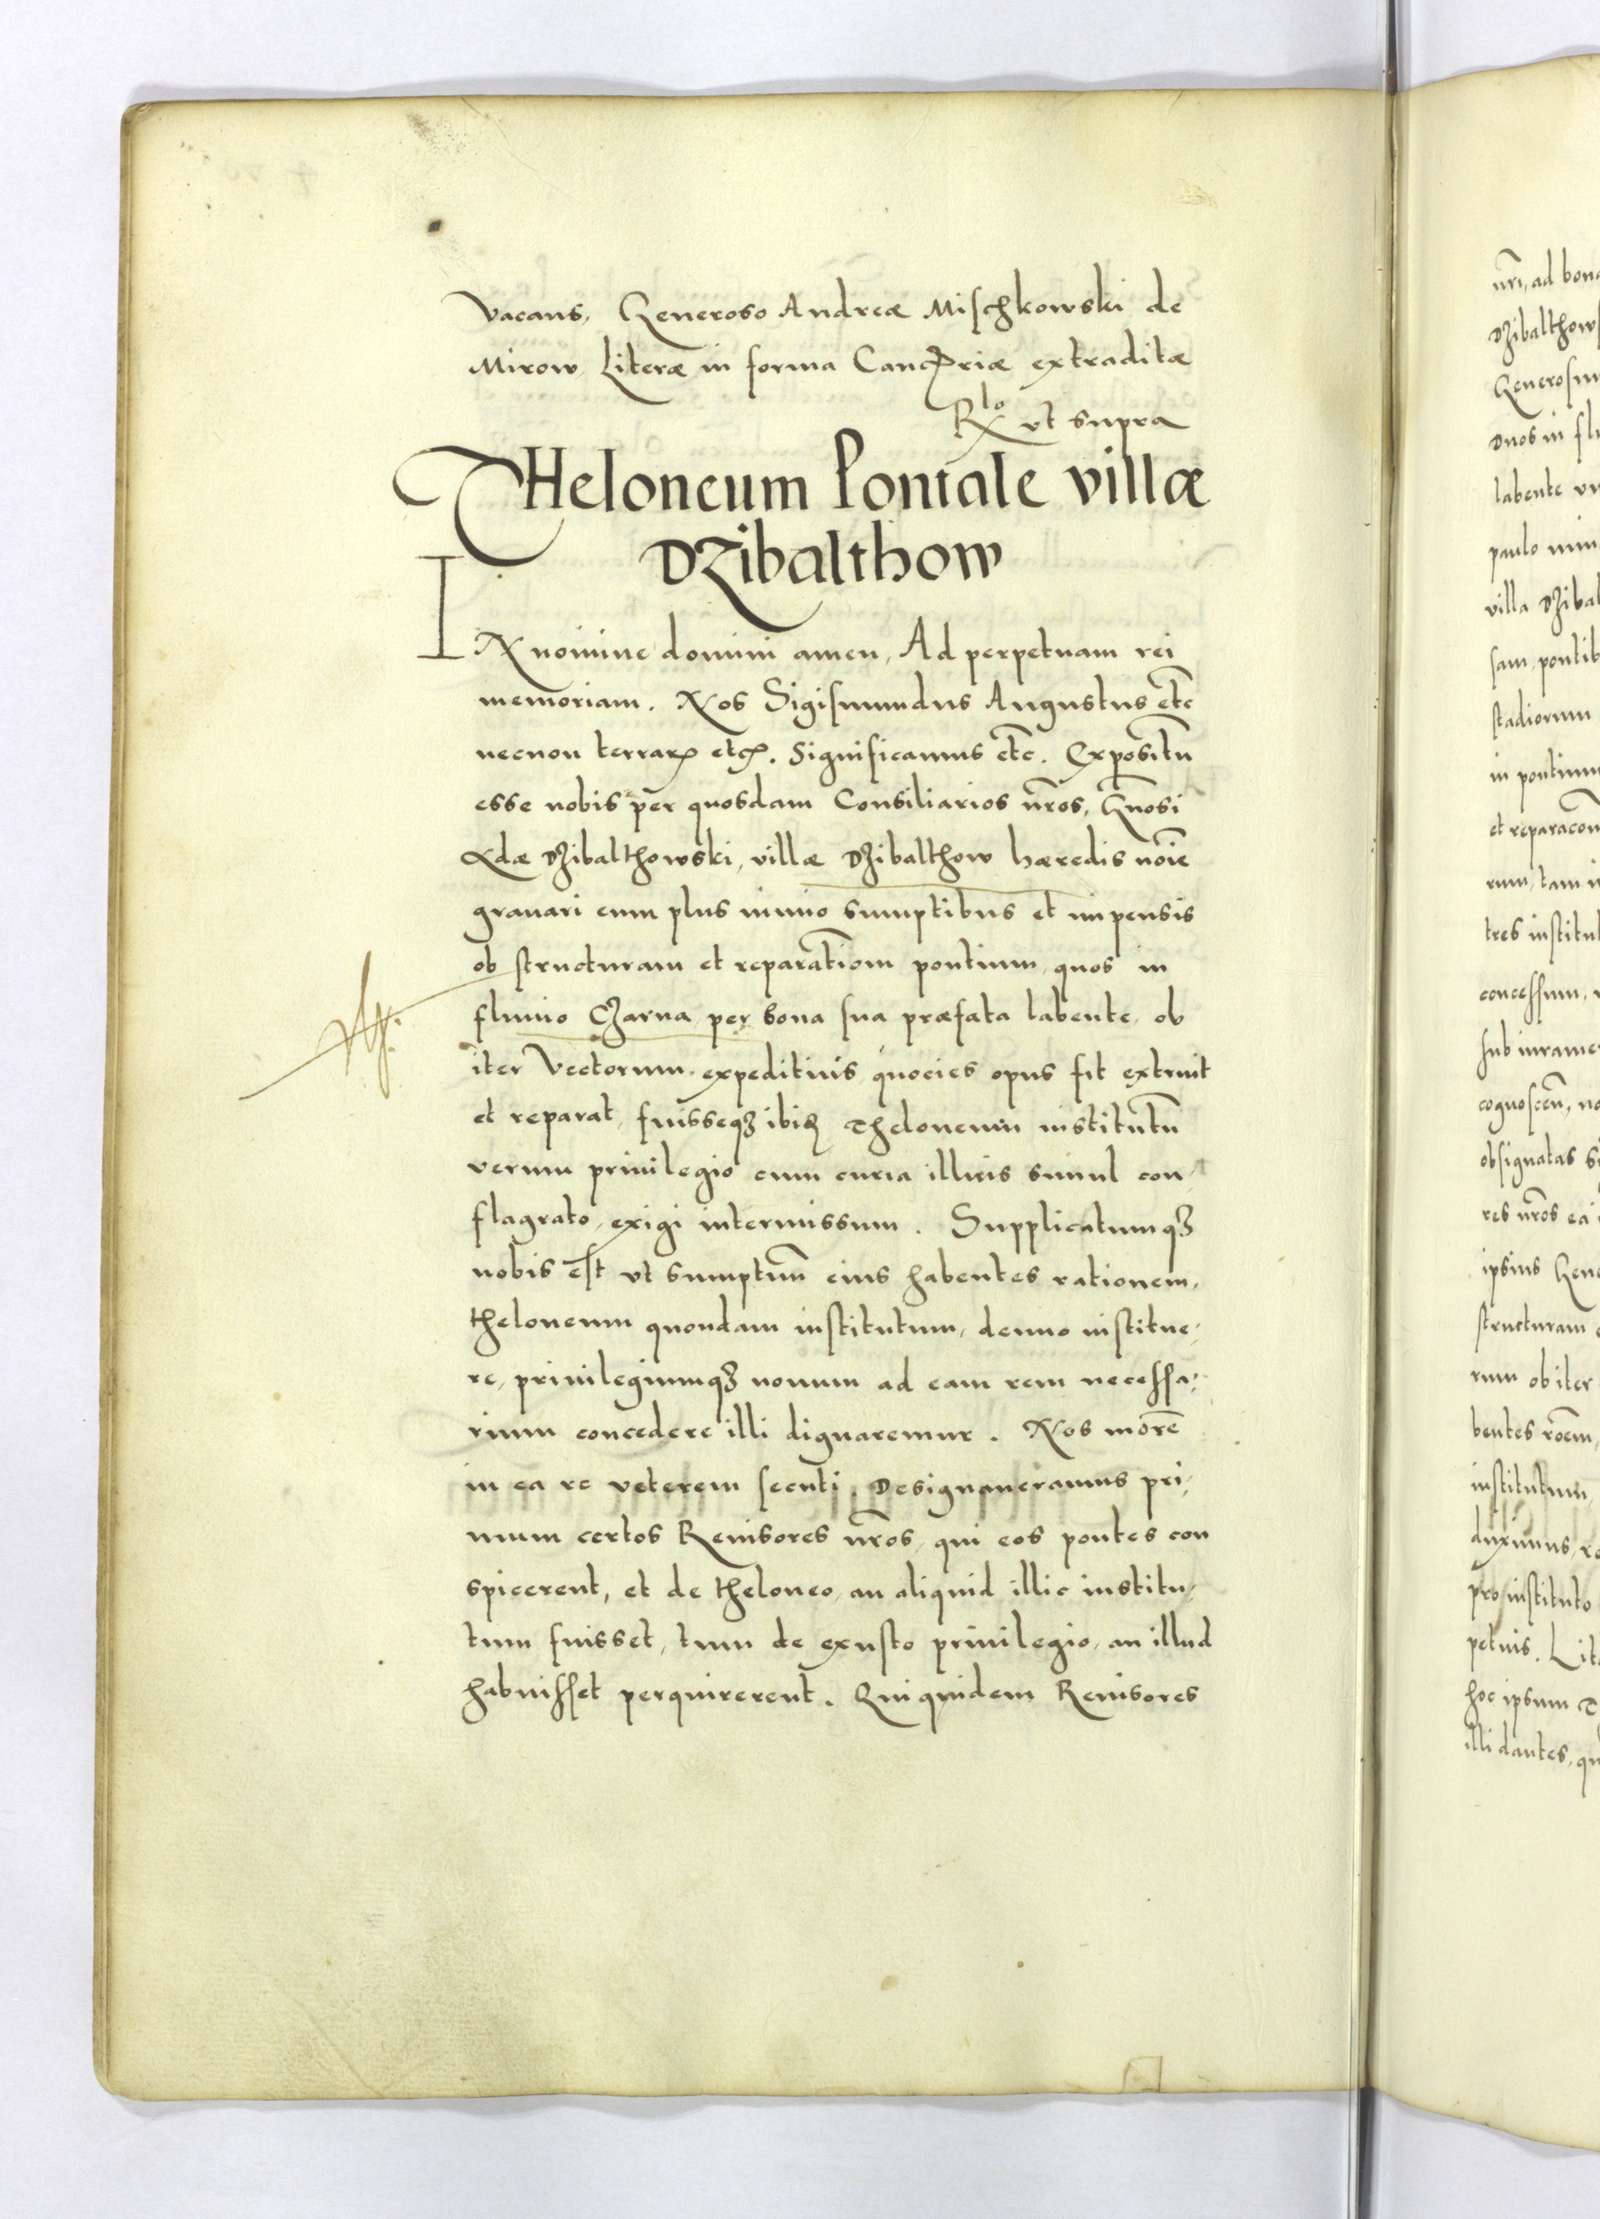 Vacans, Generoso Andreæ Mischkowski de
Mirow Literæ in forma Cancellariæ extraditæ
Rlo vt supra
THeloneum Pontale villæ
DZibalthow
IN nomine domini amen, Ad perpetuam rei
memoriam. Nos Sigismundus Augustus etc
necnon terrarꝝ etcꝝ. Significamus etc. Expositū
esse nobis per quosdam Consiliarios nr̄os, Gn̄osi
Adæ Dzibalthowski, villæ Dzibalthow hæredis noīe
grauari eum plus nimio sumptibus et impensis
ob structuram et reparatīonem pontium, quos in
fluuio Czarna per bona sua præfata labente, ob
iter Vectorum expeditius quocies opus fit extruit
et reparat, fuisseqꝫ ibiđ Theloneum institutū
verum priuilegio cum curia illius simul con-
flagrato, exigi intermissum. Supplicatumqꝫ
nobis est vt sumptuū eius habentes rationem,
theloneum quondam institutum, denuo institue-
re, priuilegiumqꝫ nouum ad eam rem necessa-
rium concedere illi dignaremur. Nos morē
in ea re veterem secuti, Designaueramus pri-
mum certos Reuisores nr̄os, qui eos pontes con
spicerent, et de theloneo, an aliquid illic institu-
tum fuisset, tum de exusto priuilegio, an illud
habuisset perquirerent. Qui quidem Reuisores
nr̄i, ad bona
Dzibalthows
duos in flu
paulo
stadiorum
in pontium
rum, tam
tres institut
concessum,
res nr̄os ea
ipsius Gene
structuram
rum ob iter
bentes roēm,
institutum,
duximus,
pro instituto
petuis. Lit
hoc ipsum
illi dantes, qu